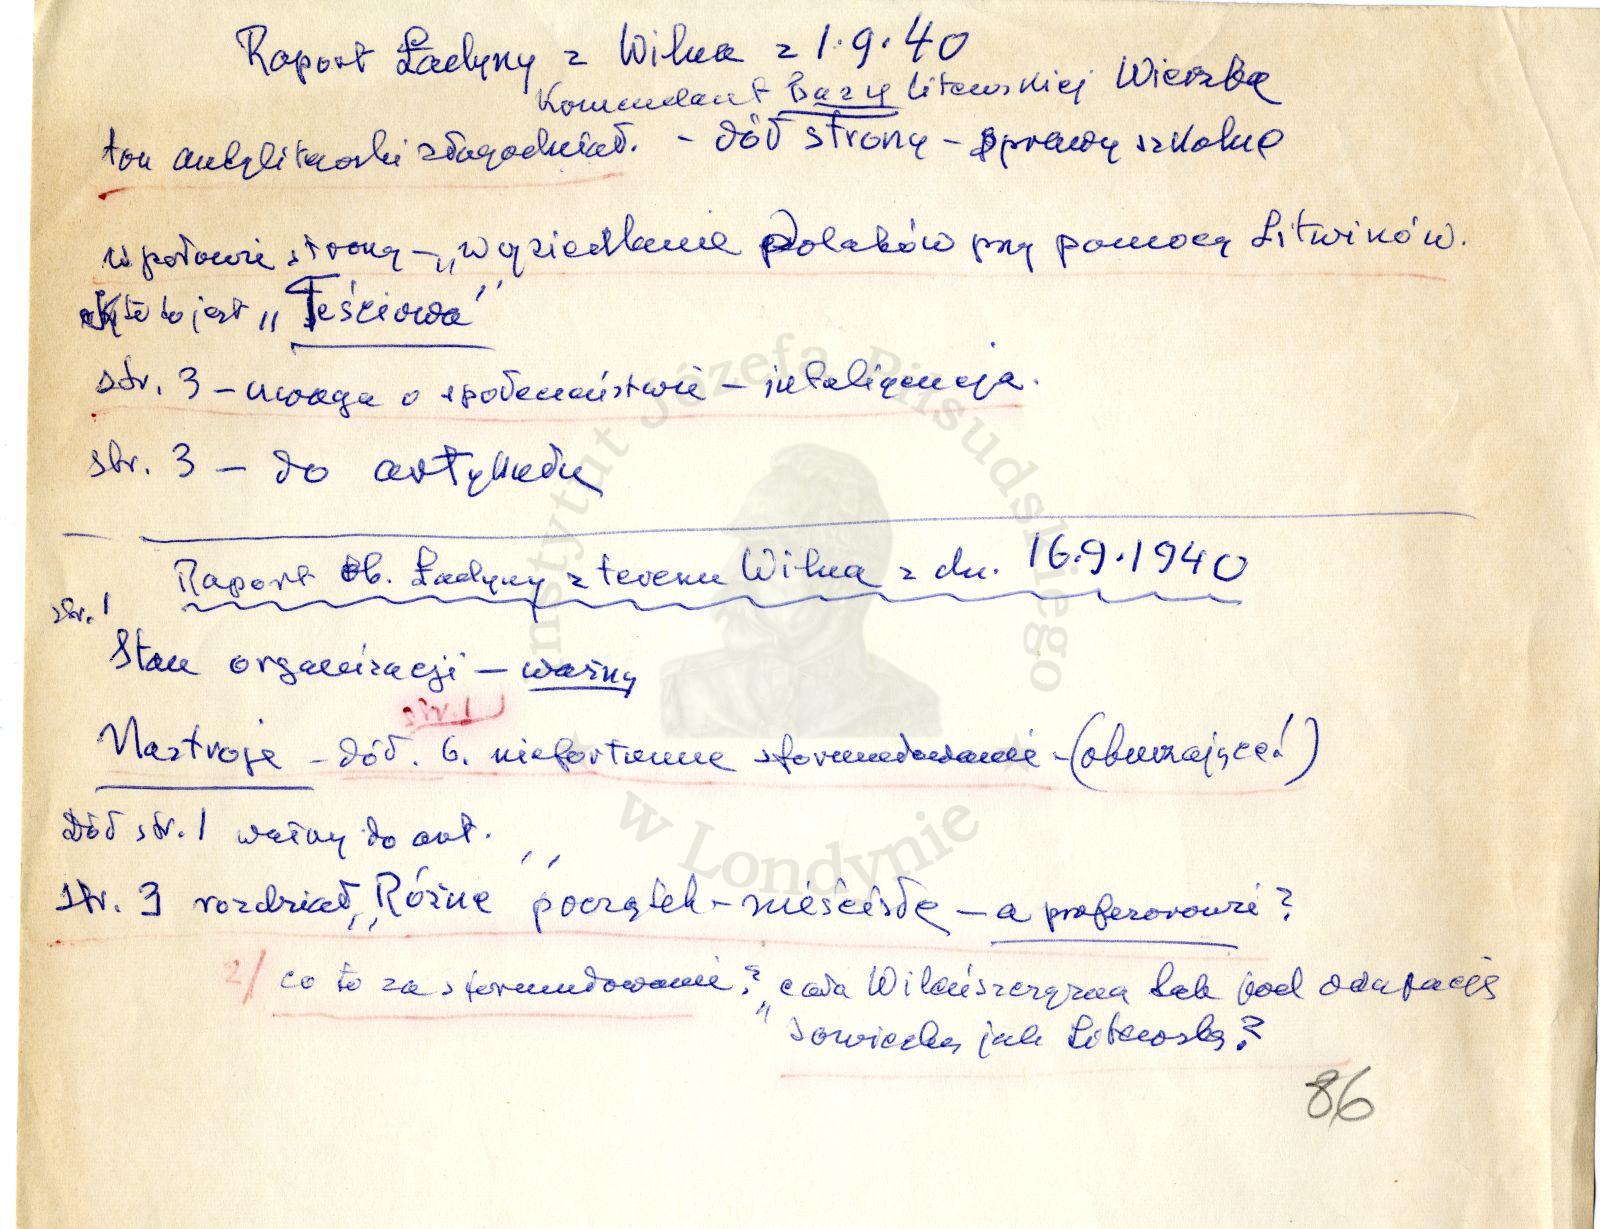 Raport Ładyny z Wilna z 1.9.40
Komendant Bazy Litewskiej Wierzba
ton antylitewski złagodniał. - dół strony - sprawy szkolne
w połowie strony - "wysiedlanie Polaków przy pomocy Litwinów.
kto to jest "Teściowa"
str. 3 - uwaga o społeczeństwie - inteligencja.
str. 3 - do artykułu
Raport Ob. Ładyny z terenu Wilna z dn. 16.9.1940
str. 1
Stan organizacji - ważny
Nastroje - dół. 6. niefortunne sformułowanie - (oburzające!)
Dół str. 1 ważny do art.
str. 3 rozdział "Różne" początek - nieścisłe - a profesorowie?
2/ co to za sformułowanie? "cała Wileńszczyzna tak pod okupacją
sowiecką jak Litewską?
86
Instytut Józefa Piłsudskiego
w Londynie